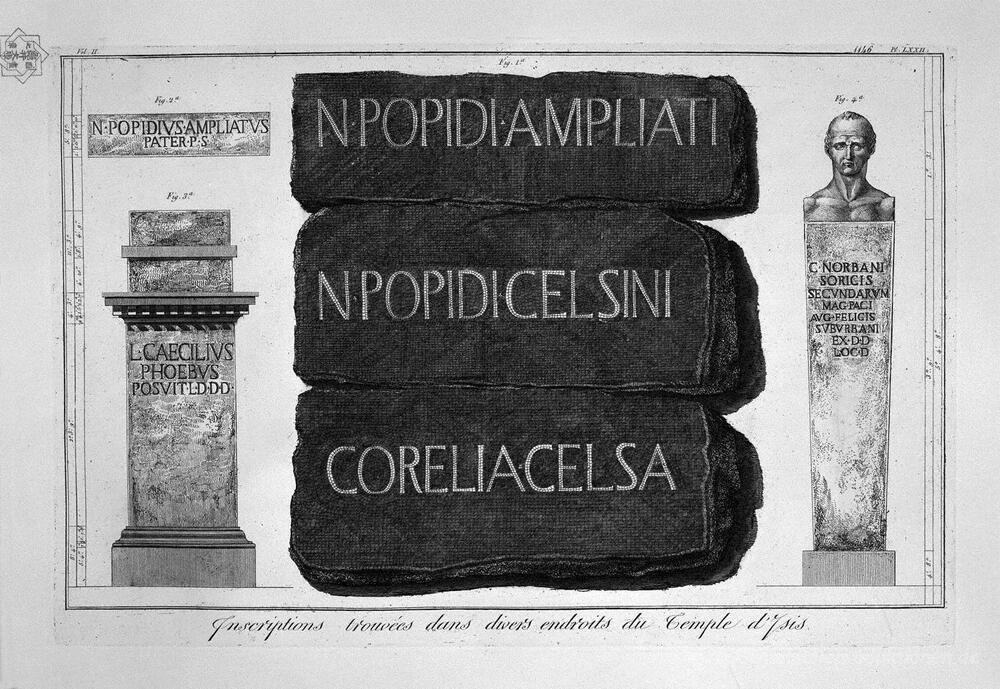 Vol. II.
1146 Pl. LXXII.
Fig. 1.a
N·POPIDI·AMPLIATI
N·POPIDI·CELSINI
CORELIA·CELSA
Fig. 2.a
N·POPIDIVS·AMPLIATVS
PATER·P·S
Fig. 3.a
L·CAECILIVS
PHOEBVS
POSVIT·L·D·D·D
Fig. 4.a
C·NORBANI
SORICIS
SECVNDARVM
MAG·PAGI
AVG·FELICIS
SVBVRBANI
EX·D·D
LOC·D
Inscriptions trouvées dans divers endroits du Temple d'Isis.